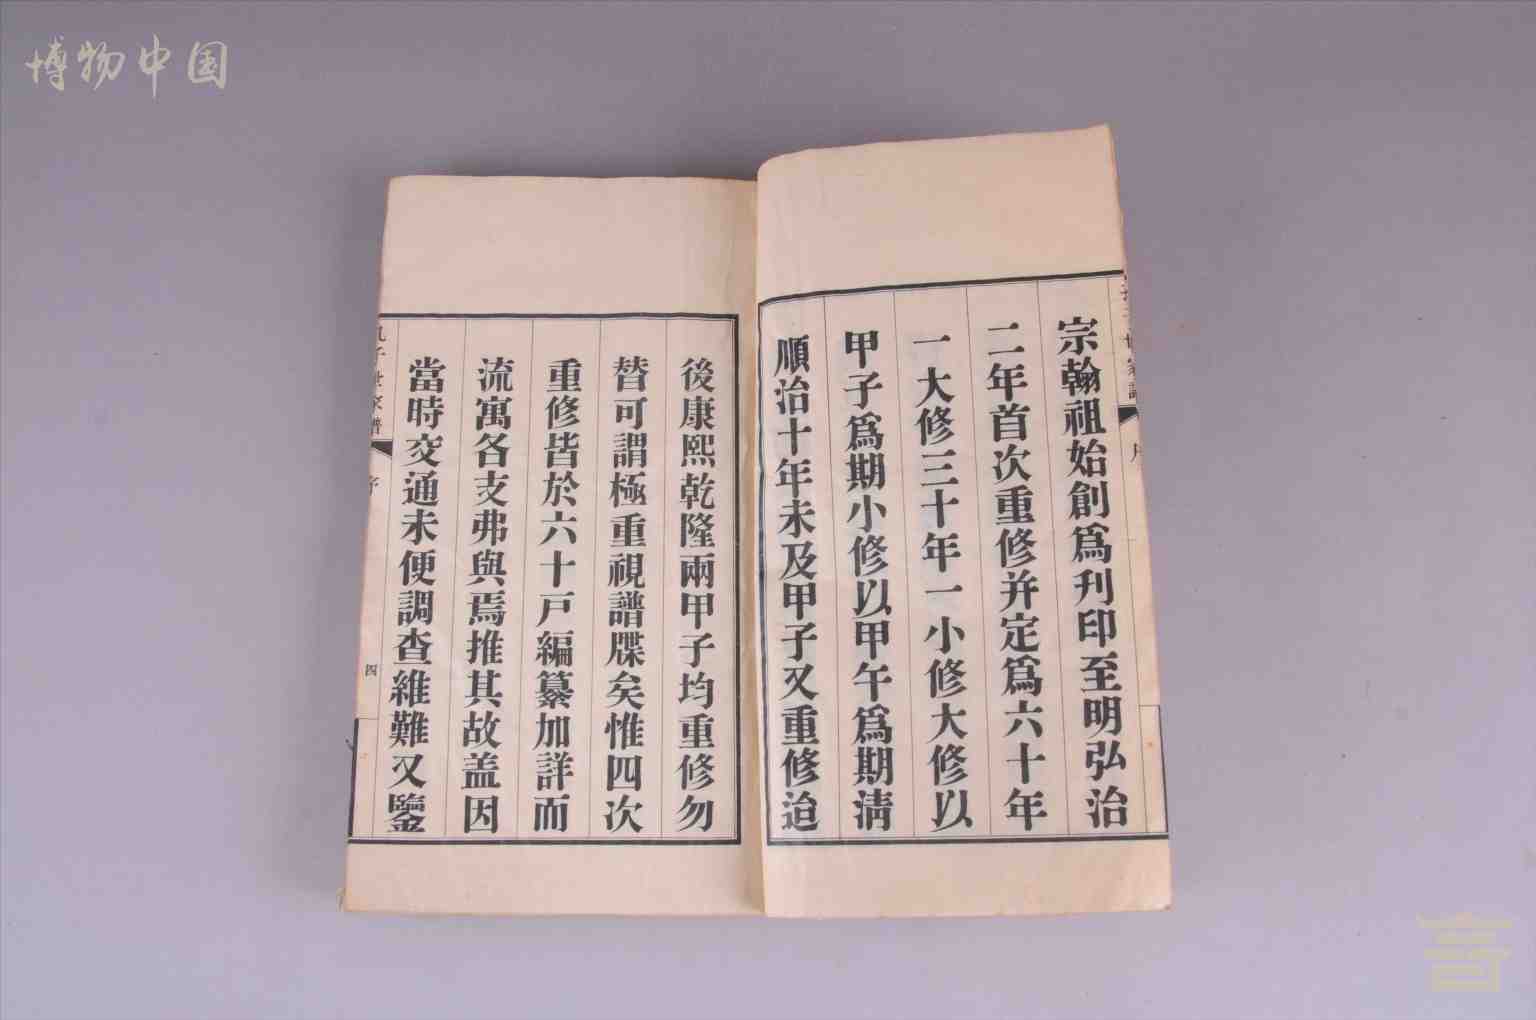 博物中国
孔子世家譜
序
宗翰祖始創爲刋印至明弘治
二年首次重修并定爲六十年
一大修三十年一小修大修以
甲子爲期小修以甲午爲期清
順治十年未及甲子又重修迨
後康熙乾隆兩甲子均重修勿
替可謂極重視譜牒矣惟四次
重修皆於六十戸編纂加詳而
流寓各支弗與焉推其故盖因
當時交通未便調查維難又鑒
孔子世家譜
序
四